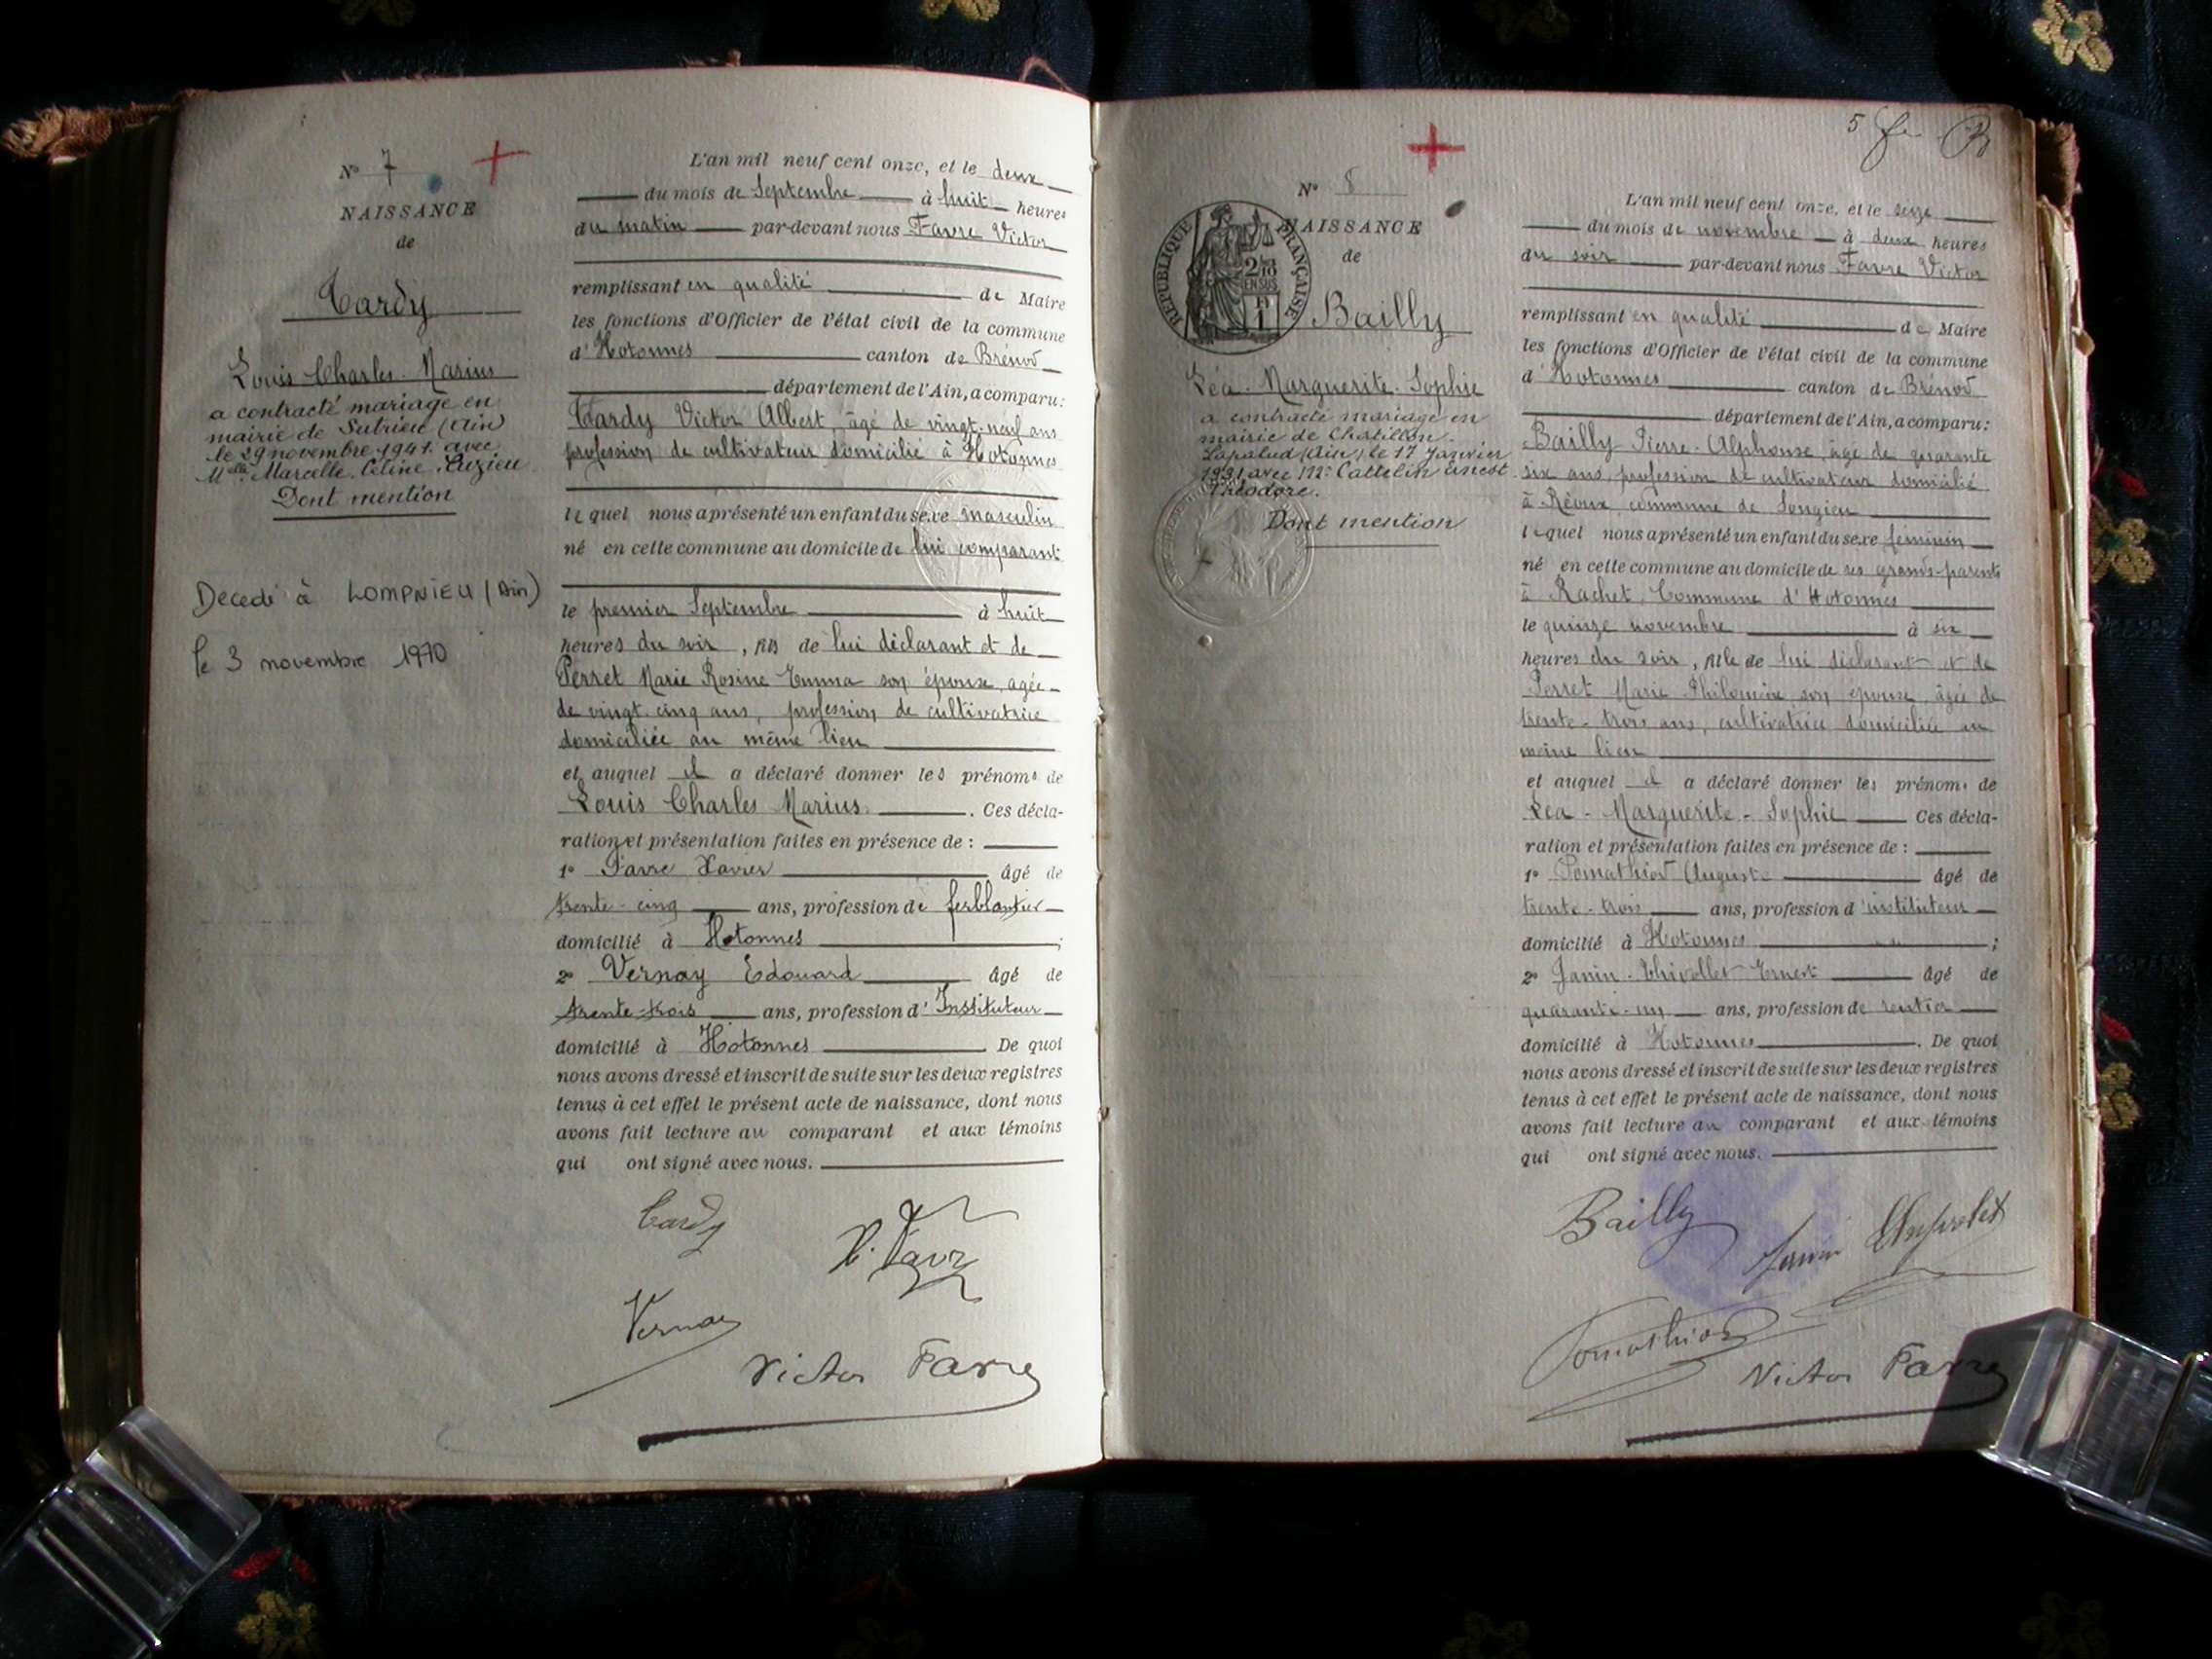 N° 7
NAISSANCE
de
Tardy
Louis Charles Marius
a contracté mariage en
mairie de Sutrieu (Ain)
le 29 novembre 1941 avec
Mlle Marcelle Céline Luzieu
Dont mention
Décédé à LOMPNIEU (Ain)
le 3 novembre 1970
L'an mil neuf cent onze, et le deux
du mois de Septembre à huit heures
du matin par-devant nous Favre Victor
remplissant en qualité de Maire
les fonctions d'Officier de l'état civil de la commune
d'Hotonnes canton de Brénod
département de l'Ain, a comparu:
Tardy Victor Albert, âgé de vingt-neuf ans
profession de cultivateur domicilié à Hotonnes
lequel nous a présenté un enfant du sexe masculin
né en cette commune au domicile de lui comparant
le premier Septembre à huit
heures du soir, fils de lui déclarant et de
Perret Marie Rosine Emma son épouse, agée
de vingt cinq ans, profession de cultivatrice
domiciliée au même lieu
et auquel il a déclaré donner les prénoms de
Louis Charles Marius. Ces décla-
ration et présentation faites en présence de :
1° Favre Xavier âgé de
trente-cinq ans, profession de ferblantier
domicilié à Hotonnes ;
2° Vernay Edouard âgé de
trente-trois ans, profession d'Instituteur
domicilié à Hotonnes De quoi
nous avons dressé et inscrit de suite sur les deux registres
tenus à cet effet le présent acte de naissance, dont nous
avons fait lecture au comparant et aux témoins
qui ont signé avec nous.
Tardy
X. Favre
Vernay
Victor Favre
5
N° 8
NAISSANCE
de
RÉPUBLIQUE FRANÇAISE
2/10
EN SUS
Bailly
Léa-Marguerite-Sophie
a contracté mariage en
mairie de Chatillon
Lapalud (Ain) le 17 Janvier
1931 avec Mr Cattelin Ernest
Théodore.
Dont mention
L'an mil neuf cent onze, et le seize
du mois de novembre à deux heures
du soir par-devant nous Favre Victor
remplissant en qualité de Maire
les fonctions d'Officier de l'état civil de la commune
d'Hotonnes canton de Brénod
département de l'Ain, a comparu:
Bailly Pierre-Alphonse, âgé de quarante
six ans, profession de cultivateur domicilié
à Réoux, commune de Songieu
lequel nous a présenté un enfant du sexe féminin
né en cette commune au domicile de ses grands-parents
à Rachet, Commune d'Hotonnes
le quinze novembre à six
heures du soir, fille de lui déclarant et de
Perret Marie Philomène son épouse, âgée de
trente-trois ans, cultivatrice domiciliée au
même lieu
et auquel il a déclaré donner les prénoms de
Léa-Marguerite-Sophie Ces décla-
ration et présentation faites en présence de :
1° Pomathiod Auguste âgé de
trente-trois ans, profession d'instituteur
domicilié à Hotonnes ;
2° Janin-Thivollet Ernest âgé de
quarante-un ans, profession de rentier
domicilié à Hotonnes. De quoi
nous avons dressé et inscrit de suite sur les deux registres
tenus à cet effet le présent acte de naissance, dont nous
avons fait lecture au comparant et aux témoins
qui ont signé avec nous.
Bailly
Janin
Pomathiod
Victor Favre